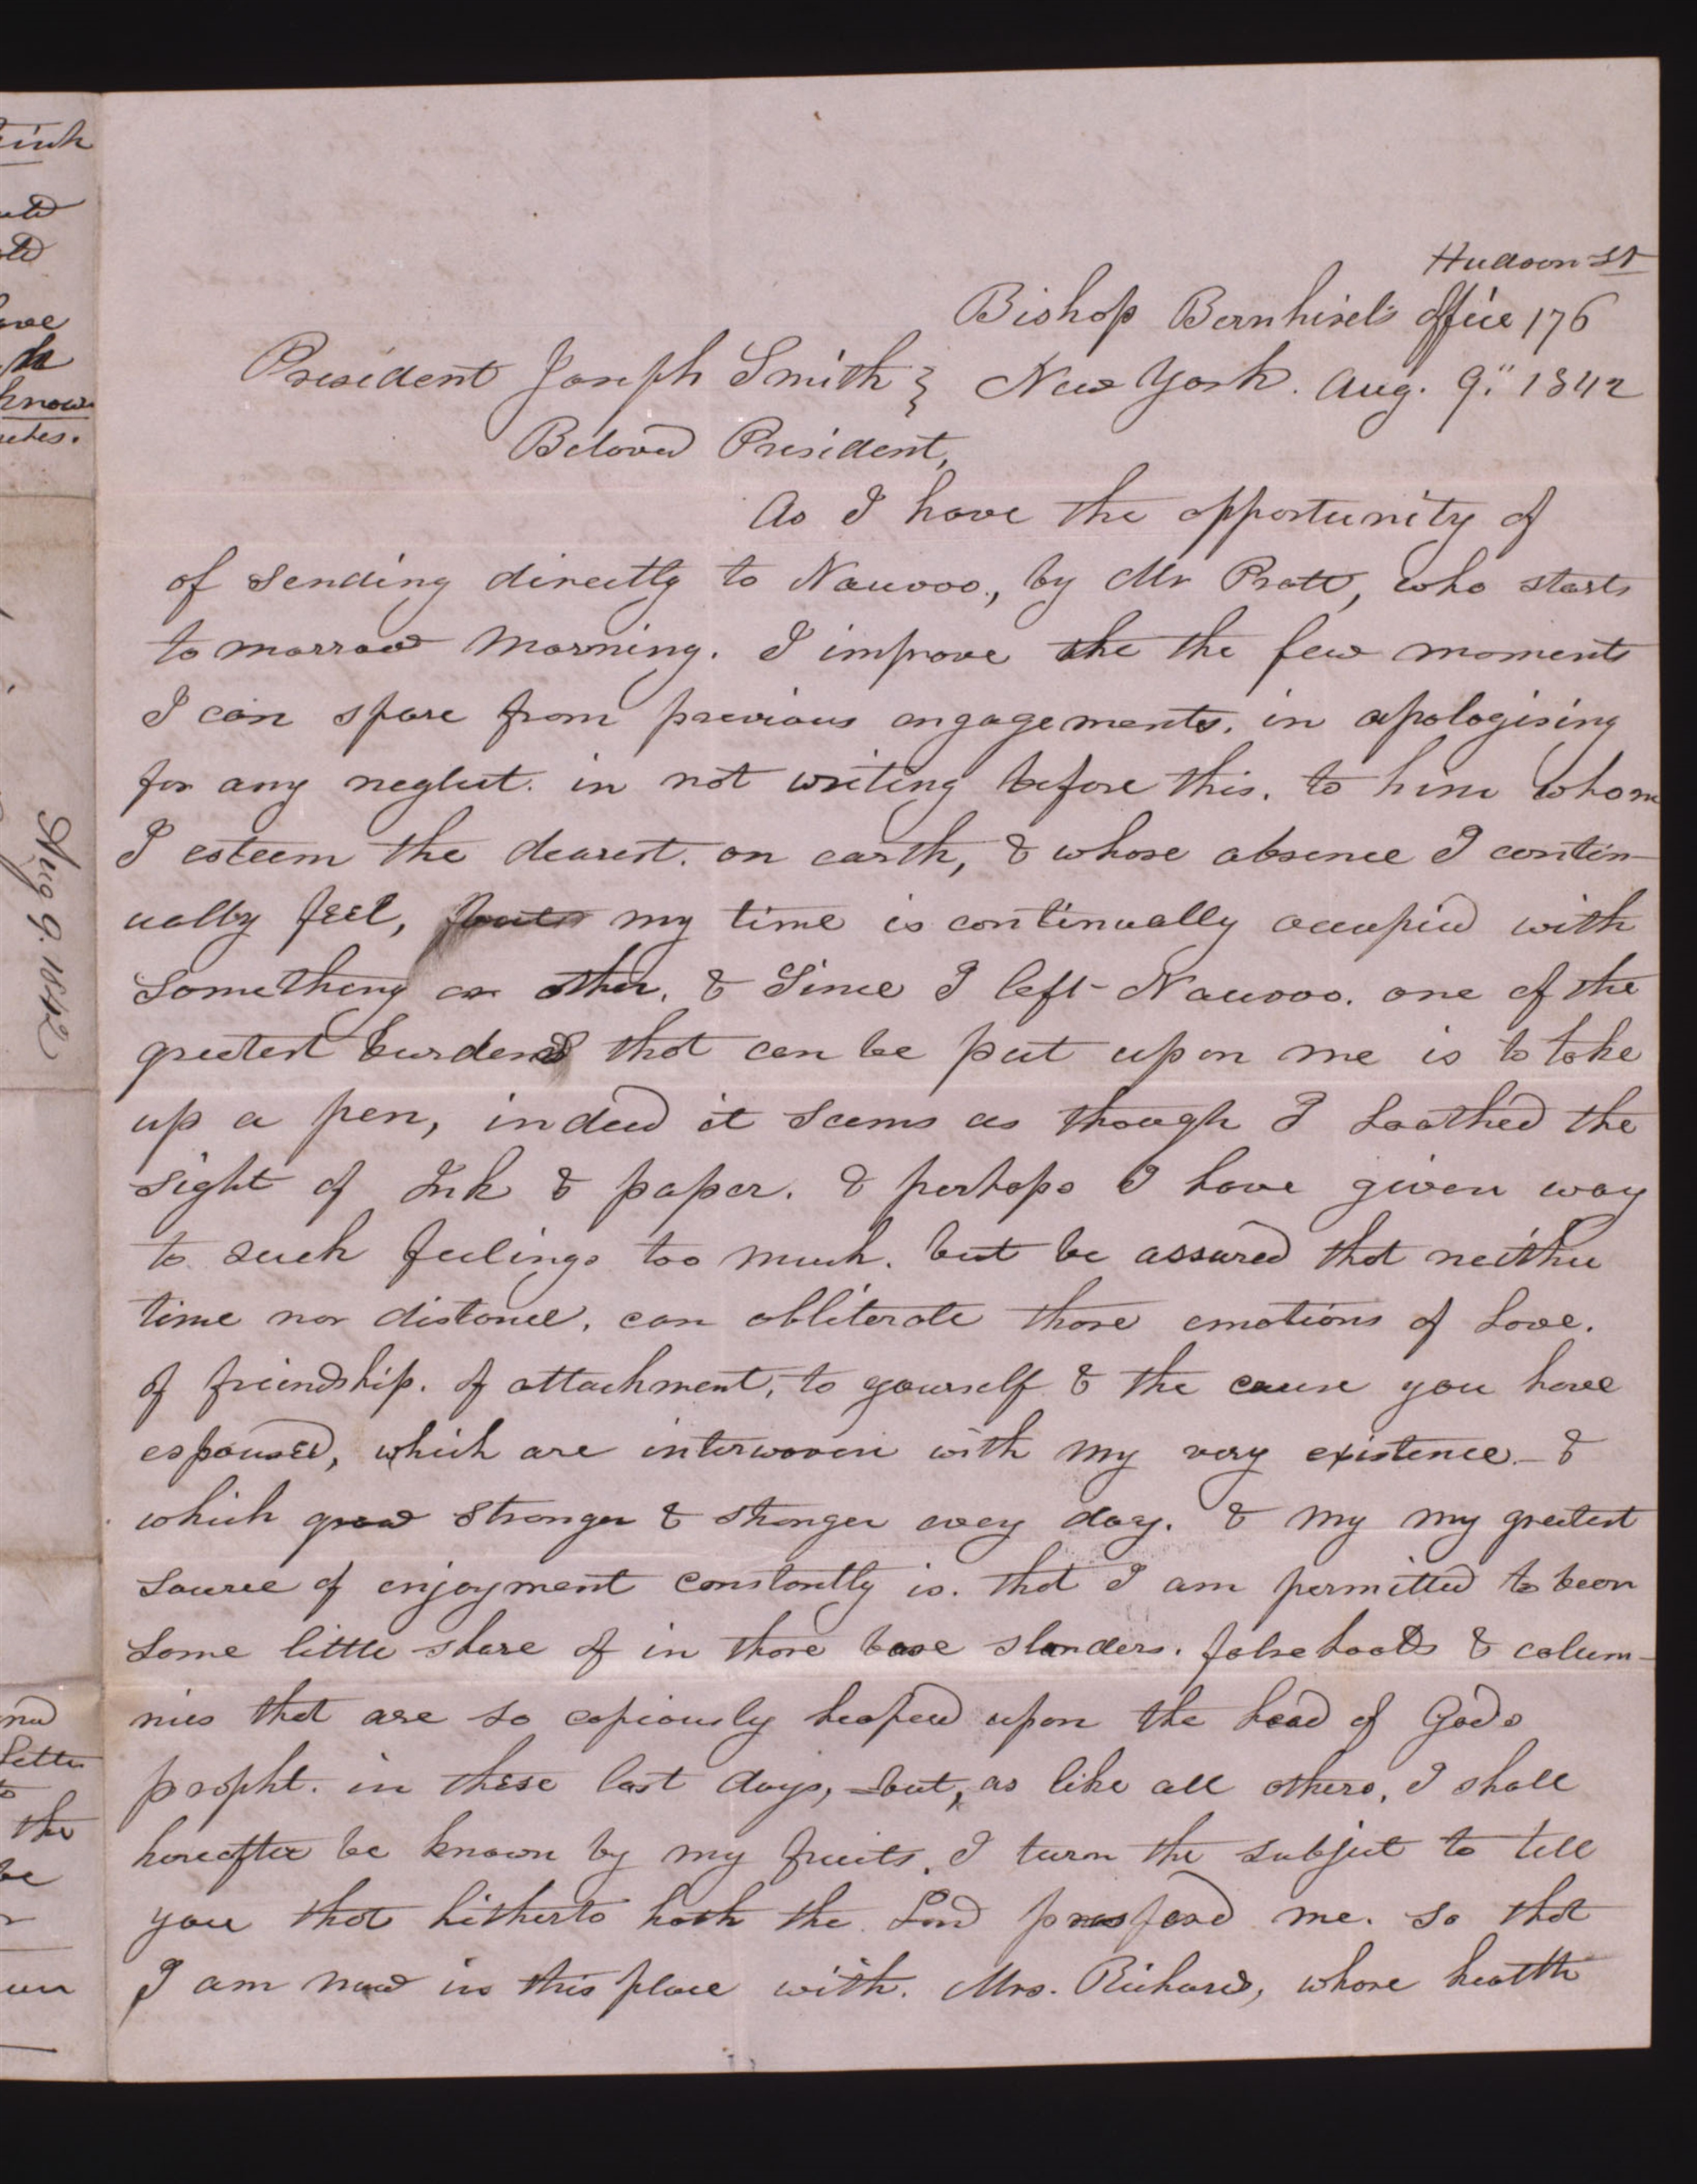 Hudson St
Bishop Bernhisel's office 176
President Joseph Smith } New York. Aug. 9." 1842
Beloved President,
As I have the opportunity of
of sending directly to Nauvoo., by Mr Pratt, who starts
to morrow morning. I improve the the few moments
I can spare from previous engagements. in apologising
for any neglect. in not writing before this. to him whom
I esteem the dearest. on earth, & whose absence I contin-
ually feel, but my time is continually occupied with
something or other. & Since I left Nauvoo. one of the
greatest burdens that can be put upon me is to take
up a pen, indeed it seems as though I Loathed the
sight of Ink & paper. & perhaps I have given way
to such feelings too much. but be assured that neither
time nor distance. can obliterate those emotions of Love.
of friendship. of attachment, to yourself & the cause you have
espoused, which are interwoven with my very existence - &
which grow stronger & stronger evey day. & my my greatest
source of enjoyment constantly is. that I am permitted to bear
some little share of in those base slanders. falsehoods & calum-
nies that are so copiously heaped upon the head of Gods
propht. in these last days, but, as like all others, I shall
hereafter be known by my fruits. I turn the subject to tell
you that hitherto hath the Lord prospered me. so that
I am now in this place with. Mrs. Richards, whose health
Aug 9. 1842
know
the
be